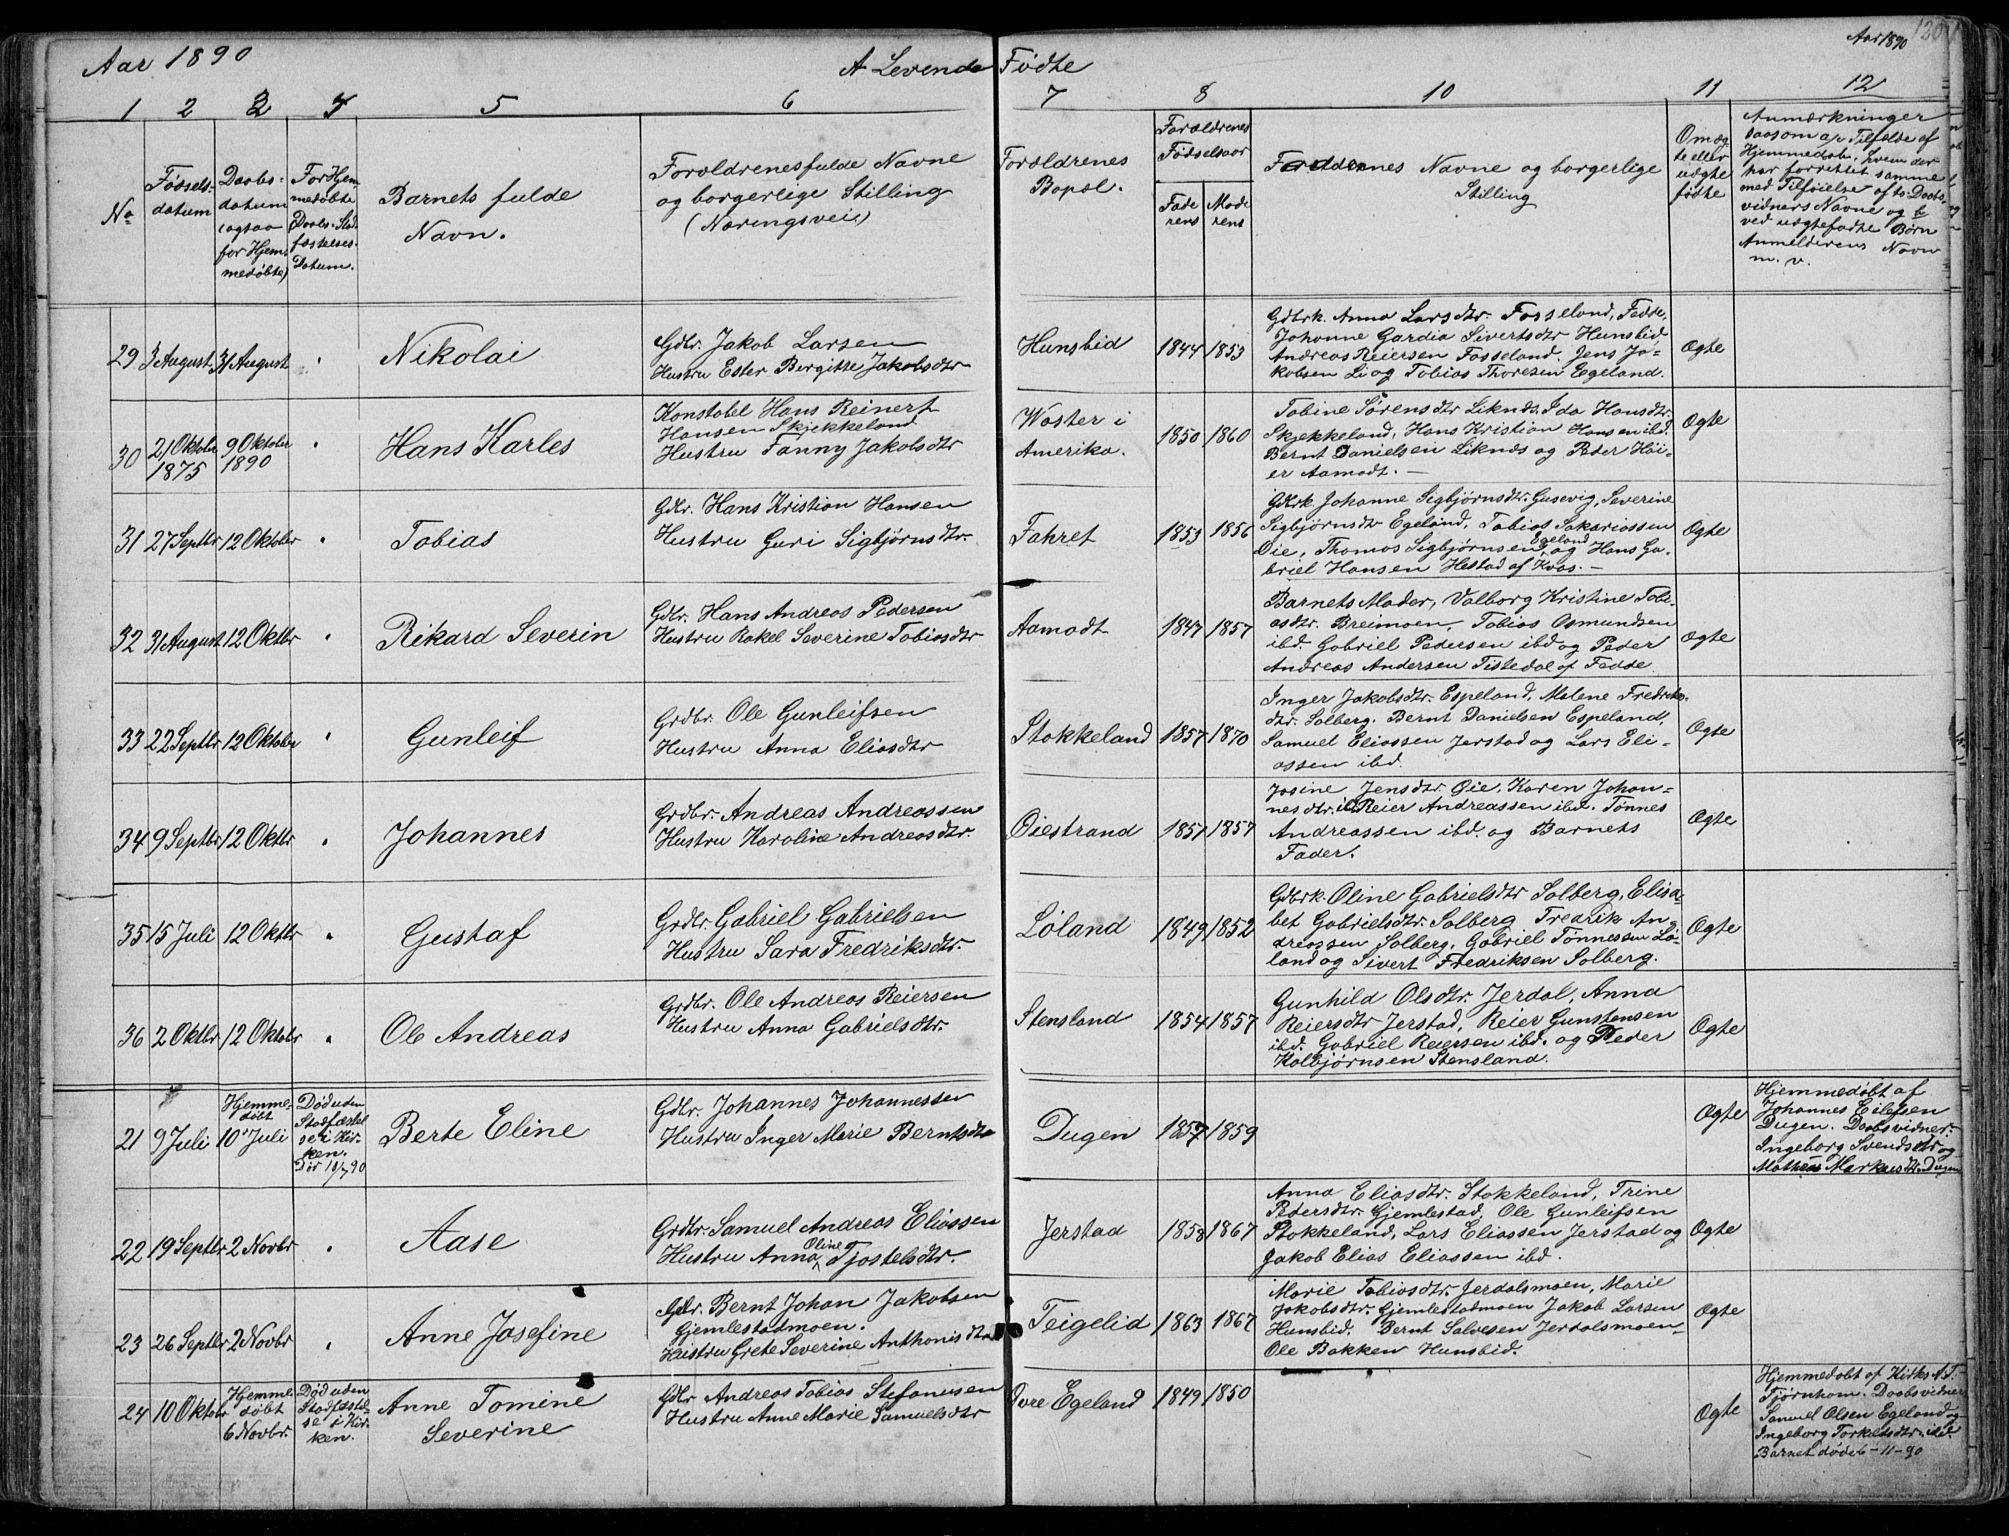 Aar 1890
A Levende Fødte
Aar 1890
1 2 3 4 5 6 7 8 10 11 12
No
Fødsels-
datum
Daabs-
datum
(ogsaa
for Hjem-
medøbte)
For Hjem-
medøbte
Daabs-Stad-
fæstelses-
Datum.
Barnets fulde
Navn.
Forældrenes fulde Navne
og borgerlige Stilling
(Næringsvei)
Forældrenes
Bopæl.
Forældrenes
Fødselsaar
Fade
rens
Mode
rens
Faddernes Navne og borgerlige
Stilling
Omæg-
te eller
uægte
fødte
Anmærkninger
saasom a, Tilfælde af
Hjemmedøb, hvem der
har forrettet samme
med Tilføielse af to Daabs-
vidners Navne og b,
ved uægtefødte Børn
Anmelderens Navn
m. v.
29 3 August 31 August
Nikolai
Gdbr. Jakob Larsen
Hustru Ester Bergitte Jakobsdtr
Hunsbid
1844 1853
Gdbrk. Anna Larsdtr. Fosseland, Fedde,
Johanne Gardia Sivertsdtr Hunsbid
Andreas Reiersen Fosseland. Jens Ja-
kobsen Li og Tobias Thoresen Egeland.
Ægte
30 21 Oktober
1875
9 Oktober
1890
Hans Karles
Konstabel Hans Reinert
Hansen Skjekkeland
Hustru Fanny Jakobsdtr
Woster i
Amerika.
1850 1860
Tobine Sørensdtr Liknes, Ida Hansdtr.
Skjekkeland, Hans Kristian Hansen ibd.
Bernt Danielsen Liknes og Peder Høi-
er Aamodt. —
Ægte
31 27 Septbr 12 Oktober
Tobias
Gdbr. Hans Kristian Hansen
Hustru Guri Sigbjørnsdtr
Fahret
1853 1856
Gdbrk. Johanne Sigbjørnsdtr. Gusevig, Severine
Sigbjørnsdtr Egeland, Tobias Sakariassen
Øie, Thomas Sigbjørnsen Egeland og Hans Ga-
briel Hansen Hestad af Kvas. —
Ægte
32 31 August 12 Oktbr
Rikard Severin
Gdbr. Hans Andreas Pedersen
Hustru Rakel Severine Tobiasdtr
Aamodt
1847 1857
Barnets Moder, Valborg Kristine Tobi-
asdtr. Breimoen, Tobias Osmundsen
ibd. Gabriel Pedersen ibd og Peder
Andreas Andersen Tistedal af Fedde
Ægte
33 22 Septbr 12 Oktober
Gunleif
Grdbr. Ole Gunleifsen
Hustru Anna Eliasdtr
Stokkeland
1857 1870
Inger Jakobsdtr. Espeland, Malene Fredriks-
dtr. Solberg. Bernt Danielsen Espeland,
Samuel Eliassen Jerstad og Lars Eli-
assen ibd.
Ægte
34 9 Septbr 12 Oktbr
Johannes
Grdbr. Andreas Andreassen
Hustru Karoline Andreasdtr.
Øiestrand
1857 1857
Josine Jensdtr Øie, Karen Johan-
nesdtr. ibd. Reier Andreassen ibd. Tønnes
Andreassen ibd. og Barnets
Fader.
Ægte
35 15 Juli 12 Oktbr
Gustaf
Grdbr. Gabriel Gabrielsen
Hustru Sara Fredriksdtr.
Løland
1849 1852
Gdbrk. Oline Gabrielsdtr Solberg, Elisa-
bet Gabrielsdtr. Solberg Fredrik An-
dreassen Solberg. Gabriel Tønnessen Lø-
land og Sivert Fredriksen Solberg.
Ægte
36 2 Oktbr 12 Oktobr
Ole Andreas
Grdbr. Ole Andreas Reiersen
Hustru Anna Gabrielsdtr.
Stensland
1854 1857
Gunhild Olsdtr. Jerdal, Anna
Reiersdtr Jerstad, Reier Gunstensen
ibd. Gabriel Reiersen ibd. og Peder
Kolbjørnsen Stensland.
Ægte
21 9 Juli
Hjemme-
døbt
10 Juli
Død uden
Stadfæstel
se i Kir-
ken.
Dør 10/7 90
Berte Eline
Gdbr. Johannes Johannessen
Hustru Inger Marie Berntsdtr
Dugen
1857 1859
Ægte
Hjemmedøbt af
Johannes Eilefsen
Dugen. Daabsvidner:
Ingeborg Svendsdtr og
Mathias Markusdtr. Dugen
22 19 Septbr 2 Novbr
Aase
Grdbr. Samuel Andreas Eliassen
Hustru Anna Oline Tjostelsdtr.
Jerstad
1858 1867
Anna Eliasdtr. Stokkeland, Trine
Pedersdtr. Gjemlestad, Ole Gunleifsen
Stokkeland, Lars Eliassen Jerstad og
Jakob Elias Eliassen ibd.
Ægte
23 26 Septbr 2 Novbr
Anne Josefine
Gdbr. Bernt Johan Jakobsen
Gjemlestadmoen.
Hustru Grete Severine Anthonisdtr
Teigelid
1863 1867
Marie Tobiasdtr. Jerdalsmoen, Marie
Jakobsdtr. Gjemlestadmoen Jakob Larsen
Hunsbid. Bernt Salvesen Jerdalsmoen
Ole Bakken Hunsbid.
Ægte
24 10 Oktobr
Hjemme
døbt
6 Novbr.
Død uden
Stadfæstel
se i Kir-
ken.
Anne Tomine
Severine
Gdbr Andreas Tobias Stefanusen
Hustru Anne Marie Samuelsdtr
Øvre Egeland
1849 1850
Ægte
Hjemmedøbt af Kirks. A. T.
Tjørnhom. Daabsvidner
Samuel Olsen Egeland og
Ingeborg Torkelsdtr. ibd.
Barnet døde 6-11-90